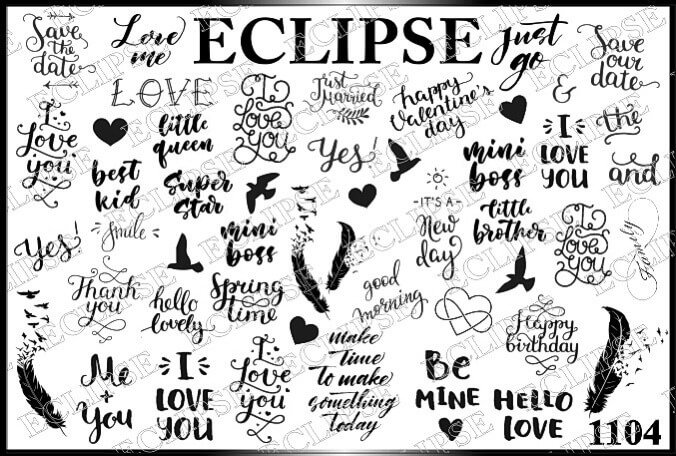 Save
the
date
Love
me
ECLIPSE
Just
go
Save
our
date
LOVE
I
Love
you
Just
Married
happy
Valentine's
day
&
the
and
I
Love
you
little
queen
Yes!
mini
boss
I
LOVE
YOU
best
kid
Super
star
IT'S A
New
day
little
brother
I
Love
you
Family
Yes!
Smile
mini
boss
Thank
you
hello
lovely
Spring
time
good
morning
Happy
birthday
Me
+
You
I
LOVE
YOU
I
Love
you
make
time
to make
something
today
Be
MINE
HELLO
LOVE
1104